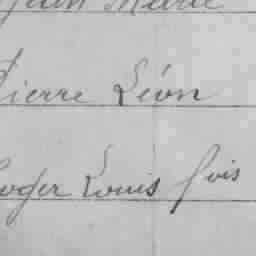 Jean Marie
Pierre Léon
Roger Louis fois